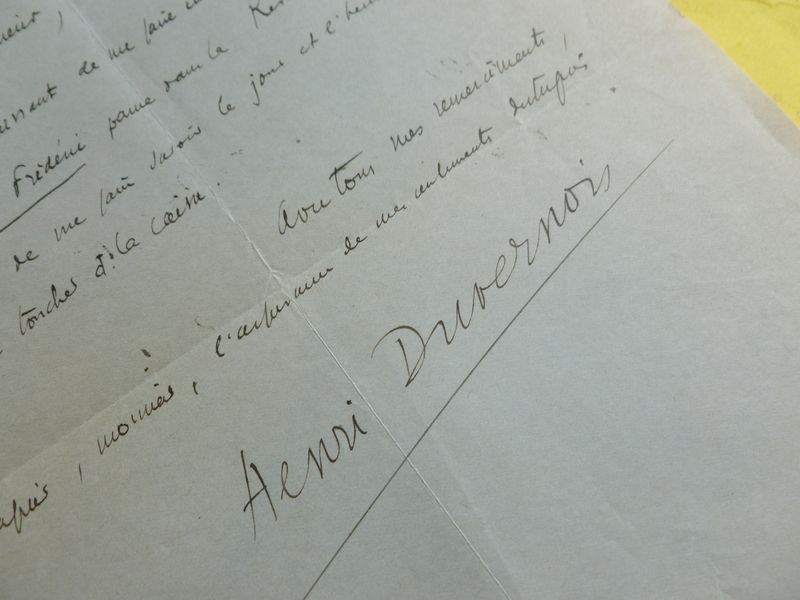 de me faire
Frédéric parue dans la
de me faire savoir le jour et l'heu
toucher à la caisse.
Avec tous mes remerciements,
, l'assurance de mes sentiments distingués
Henri Duvernois